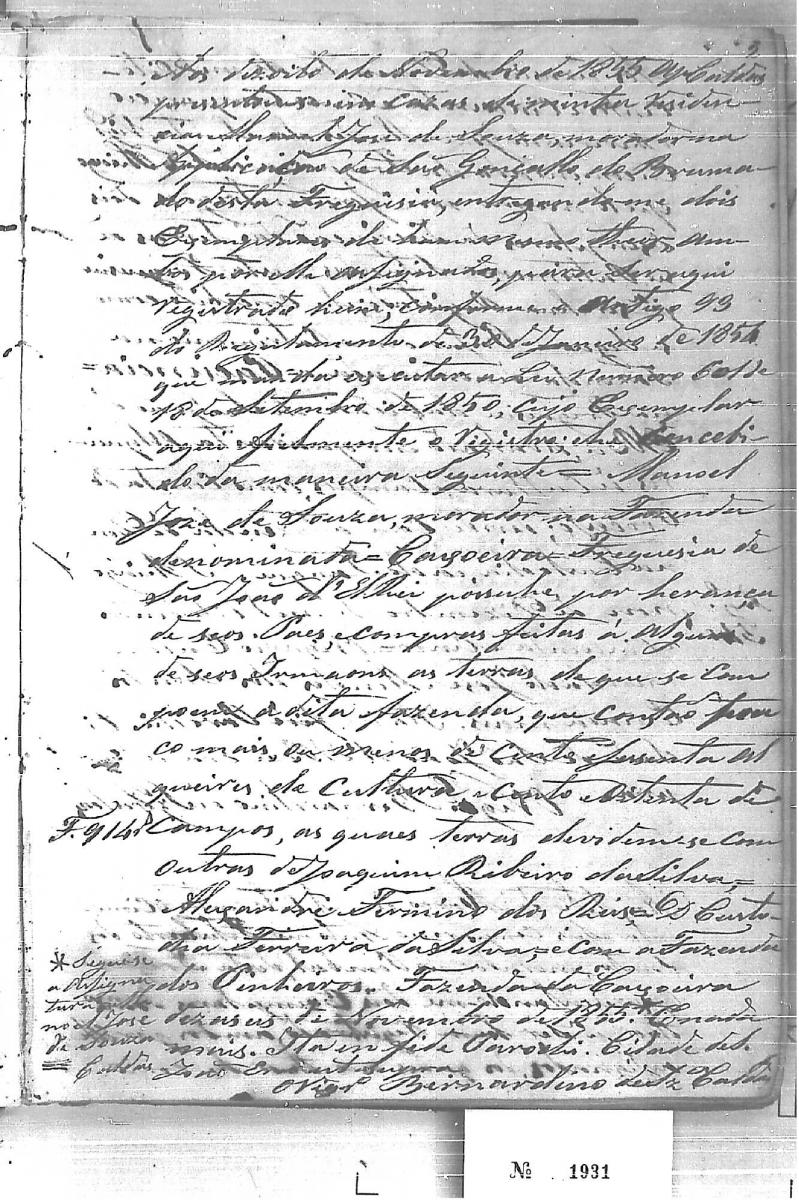 3
Aos dezoito de Novembro de 1855 Caldas
prezentouse em cazas de minha residen-
cia Manoel José de Souza, morador na
Aplicação de São Gonçallo do Bruma-
do desta Freguesia, entregando-me dois
Exemplares de hum mesmo theor, am-
bos por elle assignados, para ser aqui
registrado hum, conforme o Artigo 93
do Regulamento de 30 de Janeiro de 1854
que manda executar a Lei Numero 601 de
18 de Setembro de 1850, cujo Exemplar
aqui fielmente o registro; e he concebi-
do da maneira seguinte = Manoel
Joze de Souza, morador na Fazenda
denominada = Caxoeira = Freguesia de
São João d'ElRei possuhe por herança
de seos Paes, e compras feitas á alguns
de seos Irmaons as terras de que se com
poem a dita fazenda, que contão pou
co mais, ou menos de cento e sessenta al
queires de Cultura e cento e oitenta de
F. 914
Campos, as quaes terras devidem-se com
outras de Joaquim Ribeiro da Silva, =
Alexandre Firmino dos Reis, = D. Custo-
dia Ferreira da Silva, = e com a Fazenda
dos Pinheiros. Fazenda da Caxoeira
dezaseis de Novembro de 1855 * E nada
mais. Ita in fide Parochi. Cidade de S.
João
O Vigr.º Bernardino de Sz.ª Caldas
* Segue-se
a assigna
tura
noel José
de Souza
Caldas
Nº 1931